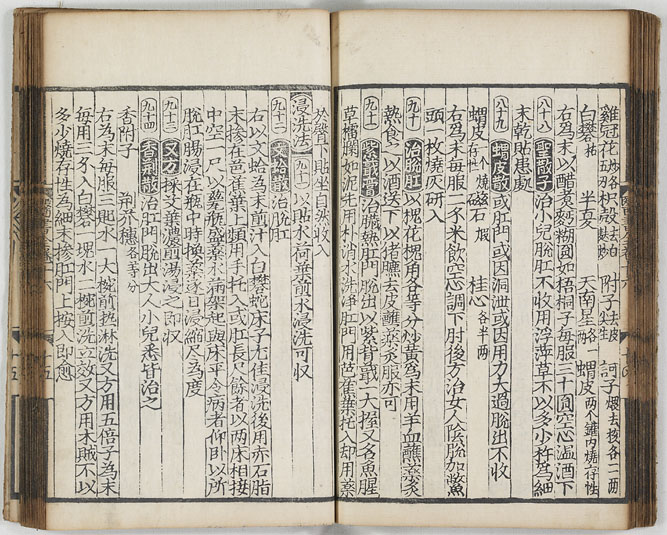 雞冠花炒各五兩 枳殼去白麩炒 附子去皮生 訶子煨去核各二兩
白礬枯 半夏 天南星各一兩 蝟皮兩个鑵內燒存性
右為末以醋煮麪糊圓如梧桐子每服三十圓空心溫酒下
八十八 聖散子 治小兒脫肛不收用浮萍草不以多少杵為細
末乾貼患處
八十九 蝟皮散 或肛門或因洞泄或因用力太過脫出不收
蝟皮一个燒存性 磁石煅 桂心各半兩
右為末每服二不米飲空心調下肘後方治女人陰脫加鱉
頭一枚燒灰研入
九十 治脫肛 以槐花槐角各等分炒黃為末用羊血蘸藥炙
熱食之以酒送下以猪臕去皮蘸藥炙服亦可
九十一 紫蕺膏 治臟熱肛門脫出以紫背蕺一大握又名魚腥
草擂爛如泥先用朴消水洗淨肛門用芭蕉葉托入却用藥
於臀下貼坐自然收入
浸洗法 九十一 以貼水荷葉煎水浸洗可收
九十二 文蛤散 治脫肛
右以文蛤為末煎汁入白礬蛇床子尤佳浸洗後用赤石脂
末摻在芭蕉葉上頻用手托入或肛長尺餘者以兩床相接
中空一尺以磁瓶盛藥水滿架起與床平令病者仰臥以所
脫肛腸浸在瓶中時換藥逐日浸縮盡為度
九十三 又方 採艾葉濃煎湯浸之即收
九十四 香荊散 治肛門脫出大人小兒悉皆治之
香附子 荊芥穗各等分
右為末每服三匙水一大椀煎熱淋洗又方用五倍子為末
每用三不入白礬一塊水二椀煎洗立效又方用木賊不以
多少燒存性為細末摻肛門上按入即愈